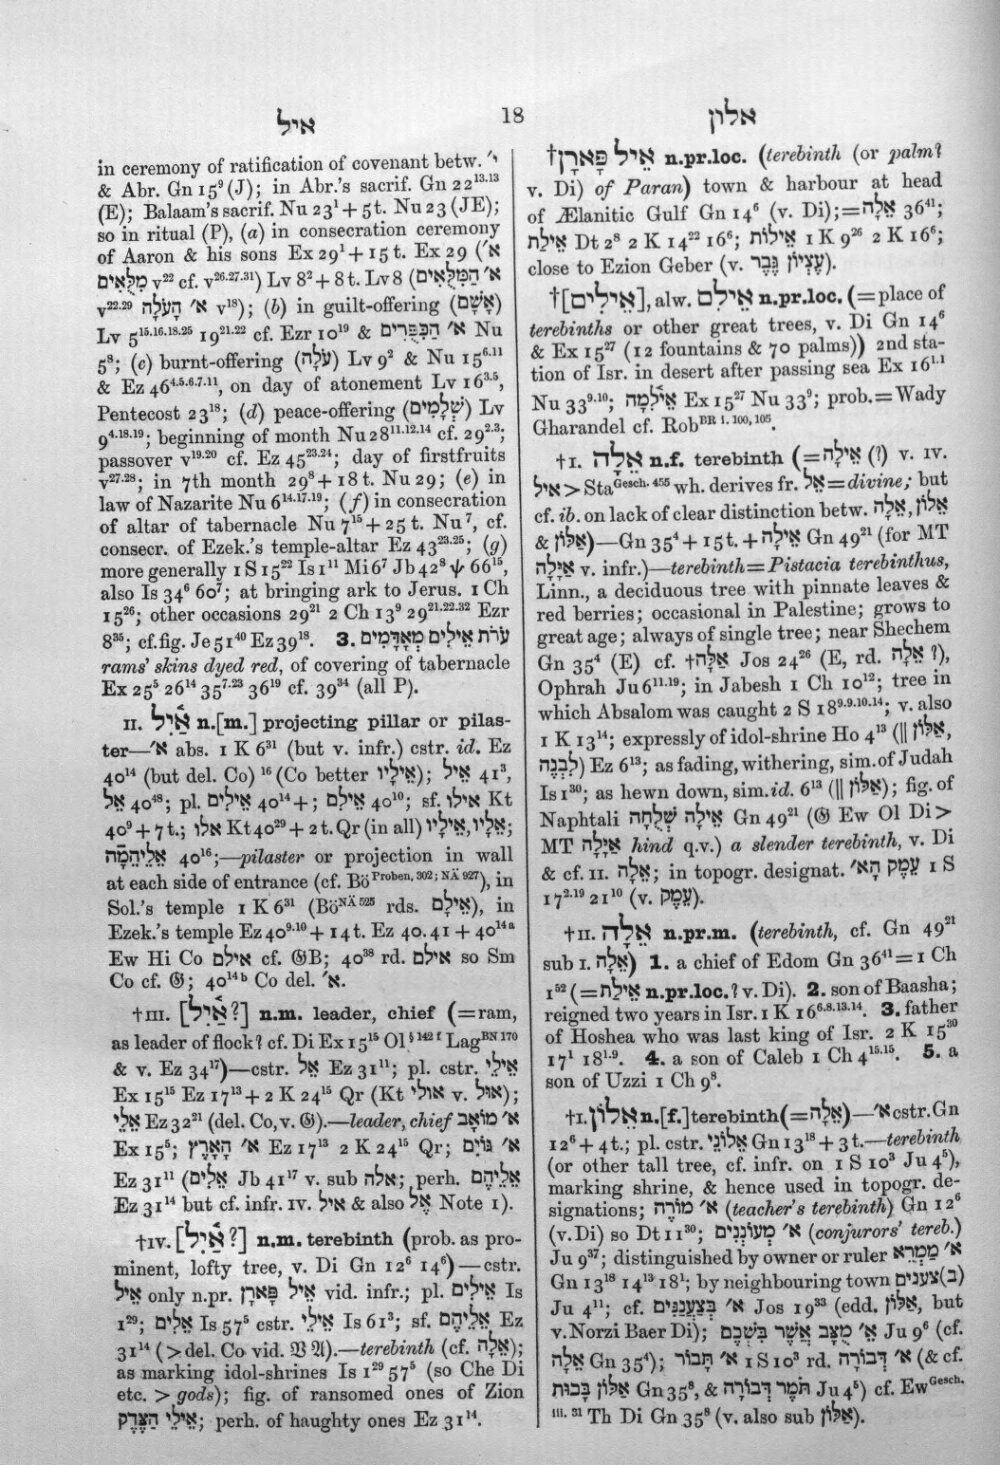 איל
18
אלון
in ceremony of ratification of covenant betw. י׳
& Abr. Gn 15⁹ (J); in Abr.'s sacrif. Gn 22¹³·¹³
(E); Balaam's sacrif. Nu 23¹ + 5 t. Nu 23 (JE);
so in ritual (P), (a) in consecration ceremony
of Aaron & his sons Ex 29¹ + 15 t. Ex 29 (א׳
מִלֻּאִים v²² cf. v²⁶·²⁷·³¹) Lv 8² + 8 t. Lv 8 (א׳ הַמִּלֻּאִים
v²²·²⁹ א׳ הָעֹלָה v¹⁸); (b) in guilt-offering (אָשָׁם)
Lv 5¹⁵·¹⁶·¹⁸·²⁵ 19²¹·²² cf. Ezr 10¹⁹ & א׳ הַכִּפֻּרִים Nu
5⁸; (c) burnt-offering (עֹלָה) Lv 9² & Nu 15⁶·¹¹
& Ez 46⁴·⁵·⁶·⁷·¹¹, on day of atonement Lv 16³·⁵,
Pentecost 23¹⁸; (d) peace-offering (שְׁלָמִים) Lv
9⁴·¹⁸·¹⁹; beginning of month Nu 28¹¹·¹²·¹⁴ cf. 29²·³;
passover v¹⁹·²⁰ cf. Ez 45²³·²⁴; day of firstfruits
v²⁷·²⁸; in 7th month 29⁸ + 18 t. Nu 29; (e) in
law of Nazarite Nu 6¹⁴·¹⁷·¹⁹; (f) in consecration
of altar of tabernacle Nu 7¹⁵ + 25 t. Nu⁷, cf.
consecr. of Ezek.'s temple-altar Ez 43²³·²⁵; (g)
more generally 1 S 15²² Is 1¹¹ Mi 6⁷ Jb 42⁸ ψ 66¹⁵,
also Is 34⁶ 60⁷; at bringing ark to Jerus. 1 Ch
15²⁶; other occasions 29²¹ 2 Ch 13⁹ 29²¹·²²·³² Ezr
8³⁵; cf. fig. Je 51⁴⁰ Ez 39¹⁸. 3. עֹרֹת אֵילִים מְאָדָּמִים
rams' skins dyed red, of covering of tabernacle
Ex 25⁵ 26¹⁴ 35⁷·²³ 36¹⁹ cf. 39³⁴ (all P).
II. אַ֫יִל n.[m.] projecting pillar or pilas-
ter—א׳ abs. 1 K 6³¹ (but v. infr.) cstr. id. Ez
40¹⁴ (but del. Co) ¹⁶ (Co better אֵילָיו); אֵיל 41³,
אֵל 40⁴⁸; pl. אֵילִים 40¹⁴ +; אֵילִם 40¹⁰; sf. אילו Kt
40⁹ + 7 t.; אלו Kt 40²⁹ + 2 t. Qr (in all) אֵלָיו, אֵילָיו;
אֵלֵיהֵמָּה 40¹⁶;—pilaster or projection in wall
at each side of entrance (cf. Bö Proben, 302; NÄ 927), in
Sol.'s temple 1 K 6³¹ (Bö NÄ 525 rds. אֵילָם), in
Ezek.'s temple Ez 40⁹·¹⁰ + 14 t. Ez 40. 41 + 40¹⁴ᵃ
Ew Hi Co אילם cf. 𝔊B; 40³⁸ rd. אילם so Sm
Co cf. 𝔊; 40¹⁴ᵇ Co del. א׳.
†III. [אַ֫יִל?] n.m. leader, chief (=ram,
as leader of flock? cf. Di Ex 15¹⁵ Ol § 142 f Lag BN 170
& v. Ez 34¹⁷)—cstr. אֵל Ez 31¹¹; pl. cstr. אֵילֵי
Ex 15¹⁵ Ez 17¹³ + 2 K 24¹⁵ Qr (Kt אולי v. אוּל);
אֵלֵי Ez 32²¹ (del. Co, v. 𝔊).—leader, chief א׳ מוֹאָב
Ex 15⁵; א׳ הָאָרֶץ Ez 17¹³ 2 K 24¹⁵ Qr; א׳ גּוֹיִם
Ez 31¹¹ (אֵלִים Jb 41¹⁷ v. sub אלה; perh. אֵלֵיהֶם
Ez 31¹⁴ but cf. infr. IV. איל & also אֵל Note 1).
†IV. [אַ֫יִל?] n.m. terebinth (prob. as pro-
minent, lofty tree, v. Di Gn 12⁶ 14⁶)—cstr.
אֵיל only n.pr. אֵיל פָּארָן vid. infr.; pl. אֵילִים Is
1²⁹; אֵלִים Is 57⁵ cstr. אֵילֵי Is 61³; sf. אֵלֵיהֶם Ez
31¹⁴ (> del. Co vid. 𝔙 𝔄).—terebinth (cf. אֵלָה);
as marking idol-shrines Is 1²⁹ 57⁵ (so Che Di
etc. > gods); fig. of ransomed ones of Zion
אֵילֵי הַצֶּדֶק; perh. of haughty ones Ez 31¹⁴.
†אֵיל פָּארָן n.pr.loc. (terebinth (or palm?
v. Di) of Paran) town & harbour at head
of Ælanitic Gulf Gn 14⁶ (v. Di); = אֵלָה 36⁴¹;
אֵילַת Dt 2⁸ 2 K 14²² 16⁶; אֵילוֹת 1 K 9²⁶ 2 K 16⁶;
close to Ezion Geber (v. עֶצְיוֹן גֶּבֶר).
†[אֵילִים], alw. אֵילִם n.pr.loc. (=place of
terebinths or other great trees, v. Di Gn 14⁶
& Ex 15²⁷ (12 fountains & 70 palms)) 2nd sta-
tion of Isr. in desert after passing sea Ex 16¹·¹
Nu 33⁹·¹⁰; אֵילִ֫מָה Ex 15²⁷ Nu 33⁹; prob. = Wady
Gharandel cf. Rob BR 1. 100, 105.
†I. אֵלָה n.f. terebinth (= אֵילָה (?) v. IV.
איל > Sta Gesch. 455 wh. derives fr. אֵל = divine; but
cf. ib. on lack of clear distinction betw. אֵלָה, אֵלוֹן
& אַלּוֹן)—Gn 35⁴ + 15 t. + אֵילָה Gn 49²¹ (for MT
אַיָּלָה v. infr.)—terebinth = Pistacia terebinthus,
Linn., a deciduous tree with pinnate leaves &
red berries; occasional in Palestine; grows to
great age; always of single tree; near Shechem
Gn 35⁴ (E) cf. †אַלָּה Jos 24²⁶ (E, rd. אֵלָה ?),
Ophrah Ju 6¹¹·¹⁹; in Jabesh 1 Ch 10¹²; tree in
which Absalom was caught 2 S 18⁹·⁹·¹⁰·¹⁴; v. also
1 K 13¹⁴; expressly of idol-shrine Ho 4¹³ (‖ אַלּוֹן,
לִבְנֶה) Ez 6¹³; as fading, withering, sim. of Judah
Is 1³⁰; as hewn down, sim. id. 6¹³ (‖ אַלּוֹן); fig. of
Naphtali אֵילָה שְׁלֻחָה Gn 49²¹ (𝔊 Ew Ol Di >
MT אַיָּלָה hind q.v.) a slender terebinth, v. Di
& cf. II. אֵלָה; in topogr. designat. עֵמֶק הָא׳ 1 S
17²·¹⁹ 21¹⁰ (v. עֵמֶק).
†II. אֵלָה n.pr.m. (terebinth, cf. Gn 49²¹
sub I. אֵלָה) 1. a chief of Edom Gn 36⁴¹ = 1 Ch
1⁵² (= אֵילַת n.pr.loc.? v. Di). 2. son of Baasha;
reigned two years in Isr. 1 K 16⁶·⁸·¹³·¹⁴. 3. father
of Hoshea who was last king of Isr. 2 K 15³⁰
17¹ 18¹·⁹. 4. a son of Caleb 1 Ch 4¹⁵·¹⁵. 5. a
son of Uzzi 1 Ch 9⁸.
†I. אֵלוֹן n.[f.] terebinth (= אֵלָה)—א׳ cstr. Gn
12⁶ + 4 t.; pl. cstr. אֵלוֹנֵי Gn 13¹⁸ + 3 t.—terebinth
(or other tall tree, cf. infr. on 1 S 10³ Ju 4⁵),
marking shrine, & hence used in topogr. de-
signations; א׳ מוֹרֶה (teacher's terebinth) Gn 12⁶
(v. Di) so Dt 11³⁰; א׳ מְעוֹנְנִים (conjurors' tereb.)
Ju 9³⁷; distinguished by owner or ruler א׳ מַמְרֵא
Gn 13¹⁸ 14¹³ 18¹; by neighbouring town (ב)צענים
Ju 4¹¹; cf. א׳ בְּצַעֲנַנִּים Jos 19³³ (edd. אַלּוֹן, but
v. Norzi Baer Di); אֵ׳ מֻצָּב אֲשֶׁר בִּשְׁכֶם Ju 9⁶ (cf.
אֵלָה Gn 35⁴); א׳ תָּבוֹר 1 S 10³ rd. א׳ דְּבוֹרָה (& cf.
אַלּוֹן בָּכוּת Gn 35⁸, & תֹּמֶר דְּבוֹרָה Ju 4⁵) cf. Ew Gesch.
iii. 31 Th Di Gn 35⁸ (v. also sub אַלּוֹן).